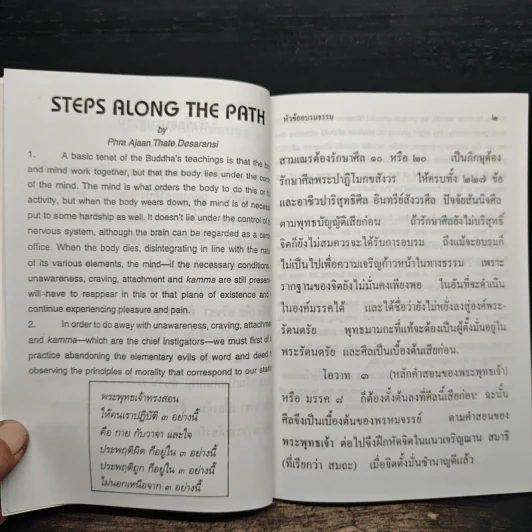 STEPS ALONG THE PATH
by
Phra Ajaan Thate Desaransi
1. A basic tenet of the Buddha's teachings is that the
and mind work together, but that the body lies under the
of the mind. The mind is what orders the body to do this or
activity, but when the body wears down, the mind is of
put to some hardship as well. It doesn't lie under the control of
nervous system, although the brain can be regarded as a
office. When the body dies, disintegrating in line with the
of its various elements, the mind—if the necessary conditions
unawareness, craving, attachment and kamma are still
will-have to reappear in this or that plane of existence and
continue experiencing pleasure and pain.
2. In order to do away with unawareness, craving,
and kamma—which are the chief instigators—we must first of
practice abandoning the elementary evils of word and deed
observing the principles of morality that correspond to our
พระพุทธเจ้าทรงสอน
ให้คนเราปฏิบัติ ๓ อย่างนี้
คือ กาย กับวาจา และใจ
ประพฤติผิด ก็อยู่ใน ๓ อย่างนี้
ประพฤติถูก ก็อยู่ใน ๓ อย่างนี้
ไม่นอกเหนือจาก ๓ อย่างนี้
หัวข้ออบรมธรรม ๒
สามเณรต้องรักษาศีล ๑๐ หรือ ๒๐ เป็นภิกษุต้อง
รักษาศีลพระปาฏิโมกขสังวร ให้ครบทั้ง ๒๒๗ ข้อ
และอาชีวปาริสุทธิศีล อินทรีย์สังวรศีล ปัจจัยสันนิจศีล
ตามพุทธบัญญัติเสียก่อน ถ้ารักษาศีลยังไม่บริสุทธิ์
จิตก็ยังไม่สมควรจะได้รับการอบรม ถึงแม้จะอบรมก็
ไม่เป็นไปเพื่อความเจริญก้าวหน้าในทางธรรม เพราะ
รากฐานของจิตยังไม่มั่นคงเพียงพอ ในอันที่จะดำเนิน
ในองค์มรรคได้ และได้ชื่อว่ายังไม่หยั่งลงสู่องค์พระ-
รัตนตรัย พุทธมามกะที่แท้จะต้องเป็นผู้ตั้งมั่นอยู่ใน
พระรัตนตรัย และศีลเป็นเบื้องต้นเสียก่อน.
โอวาท ๓ (หลักคำสอนของพระพุทธเจ้า)
หรือ มรรค ๘ ก็ต้องตั้งต้นลงที่ศีลนี้เสียก่อน ฉะนั้น
ศีลจึงเป็นเบื้องต้นของพรหมจรรย์ ตามคำสอนของ
พระพุทธเจ้า ต่อไปจึงฝึกหัดจิตในแนวเจริญฌาน สมาธิ
(ที่เรียกว่า สมถะ) เมื่อจิตตั้งมั่นชำนาญดีแล้ว